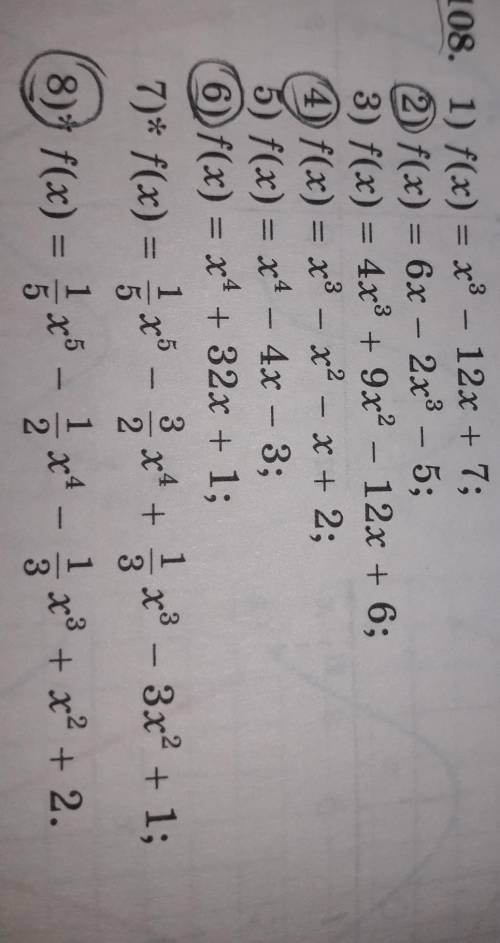 108. 1) f(x) = x³ − 12x + 7;
2) f(x) = 6x − 2x³ − 5;
3) f(x) = 4x³ + 9x² − 12x + 6;
4) f(x) = x³ − x² − x + 2;
5) f(x) = x⁴ − 4x − 3;
6) f(x) = x⁴ + 32x + 1;
7)* f(x) = 1/5 x⁵ − 3/2 x⁴ + 1/3 x³ − 3x² + 1;
8)* f(x) = 1/5 x⁵ − 1/2 x⁴ − 1/3 x³ + x² + 2.